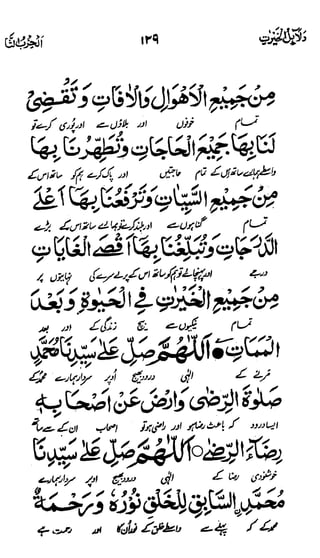 دلائل الخیرات ۱۲۹ الحزب الثا
مِنْ جَمِيْعِ الْاَهْوَالِ وَالْاٰفَاتِ وَتَقْضِيْ
تمام خوفوں اور بلاؤں سے اور پوری کرے تو
لَنَا بِهَا جَمِيْعَ الْحَاجَاتِ وَتُطَهِّرُنَا بِهَا
تمام حاجتیں اور پاک کرے ہم کو ساتھ اس کے
مِنْ جَمِيْعِ السَّيِّاٰتِ وَتَرْفَعُنَا بِهَا اَعْلَى
تمام گناہوں سے اور بلند کرے تو ہمیں ساتھ اس کے بڑے
الدَّرَجَاتِ وَتُبَلِّغُنَا بِهَا اَقْصَى الْغَايَاتِ
درجے اور پہنچائے تو ہم کو ساتھ اس کے پرلے سرے کی نہایتوں پر
مِنْ جَمِيْعِ الْخَيْرٰتِ فِي الْحَيٰوةِ وَبَعْدَ
تمام نیکیوں سے بیچ زندگی کے اور بعد
الْمَمَاتِ ○ اَللّٰهُمَّ صَلِّ عَلٰى سَيِّدِنَا مُحَمَّدٍ
مرنے کے الٰہی درود بھیج اوپر سردار ہمارے محمد کے
صَلٰوةَ الرِّضٰى وَارْضَ عَنْ اَصْحَابِهٖ
ایسا درود کہ باعث رضا ہو اور راضی ہو تو اصحاب ان کے سے
رِضَاءَ الرِّضٰى ○ اَللّٰهُمَّ صَلِّ عَلٰى سَيِّدِنَا
خوشنودی رضا کے الٰہی درود بھیج اوپر سردار ہمارے
مُحَمَّدِ السَّابِقِ لِلْخَلْقِ نُوْرُهٗ وَرَحْمَةٌ
محمد کے کہ پہلے سے واسطے خلق کے نور ان کا اور رحمت ہے